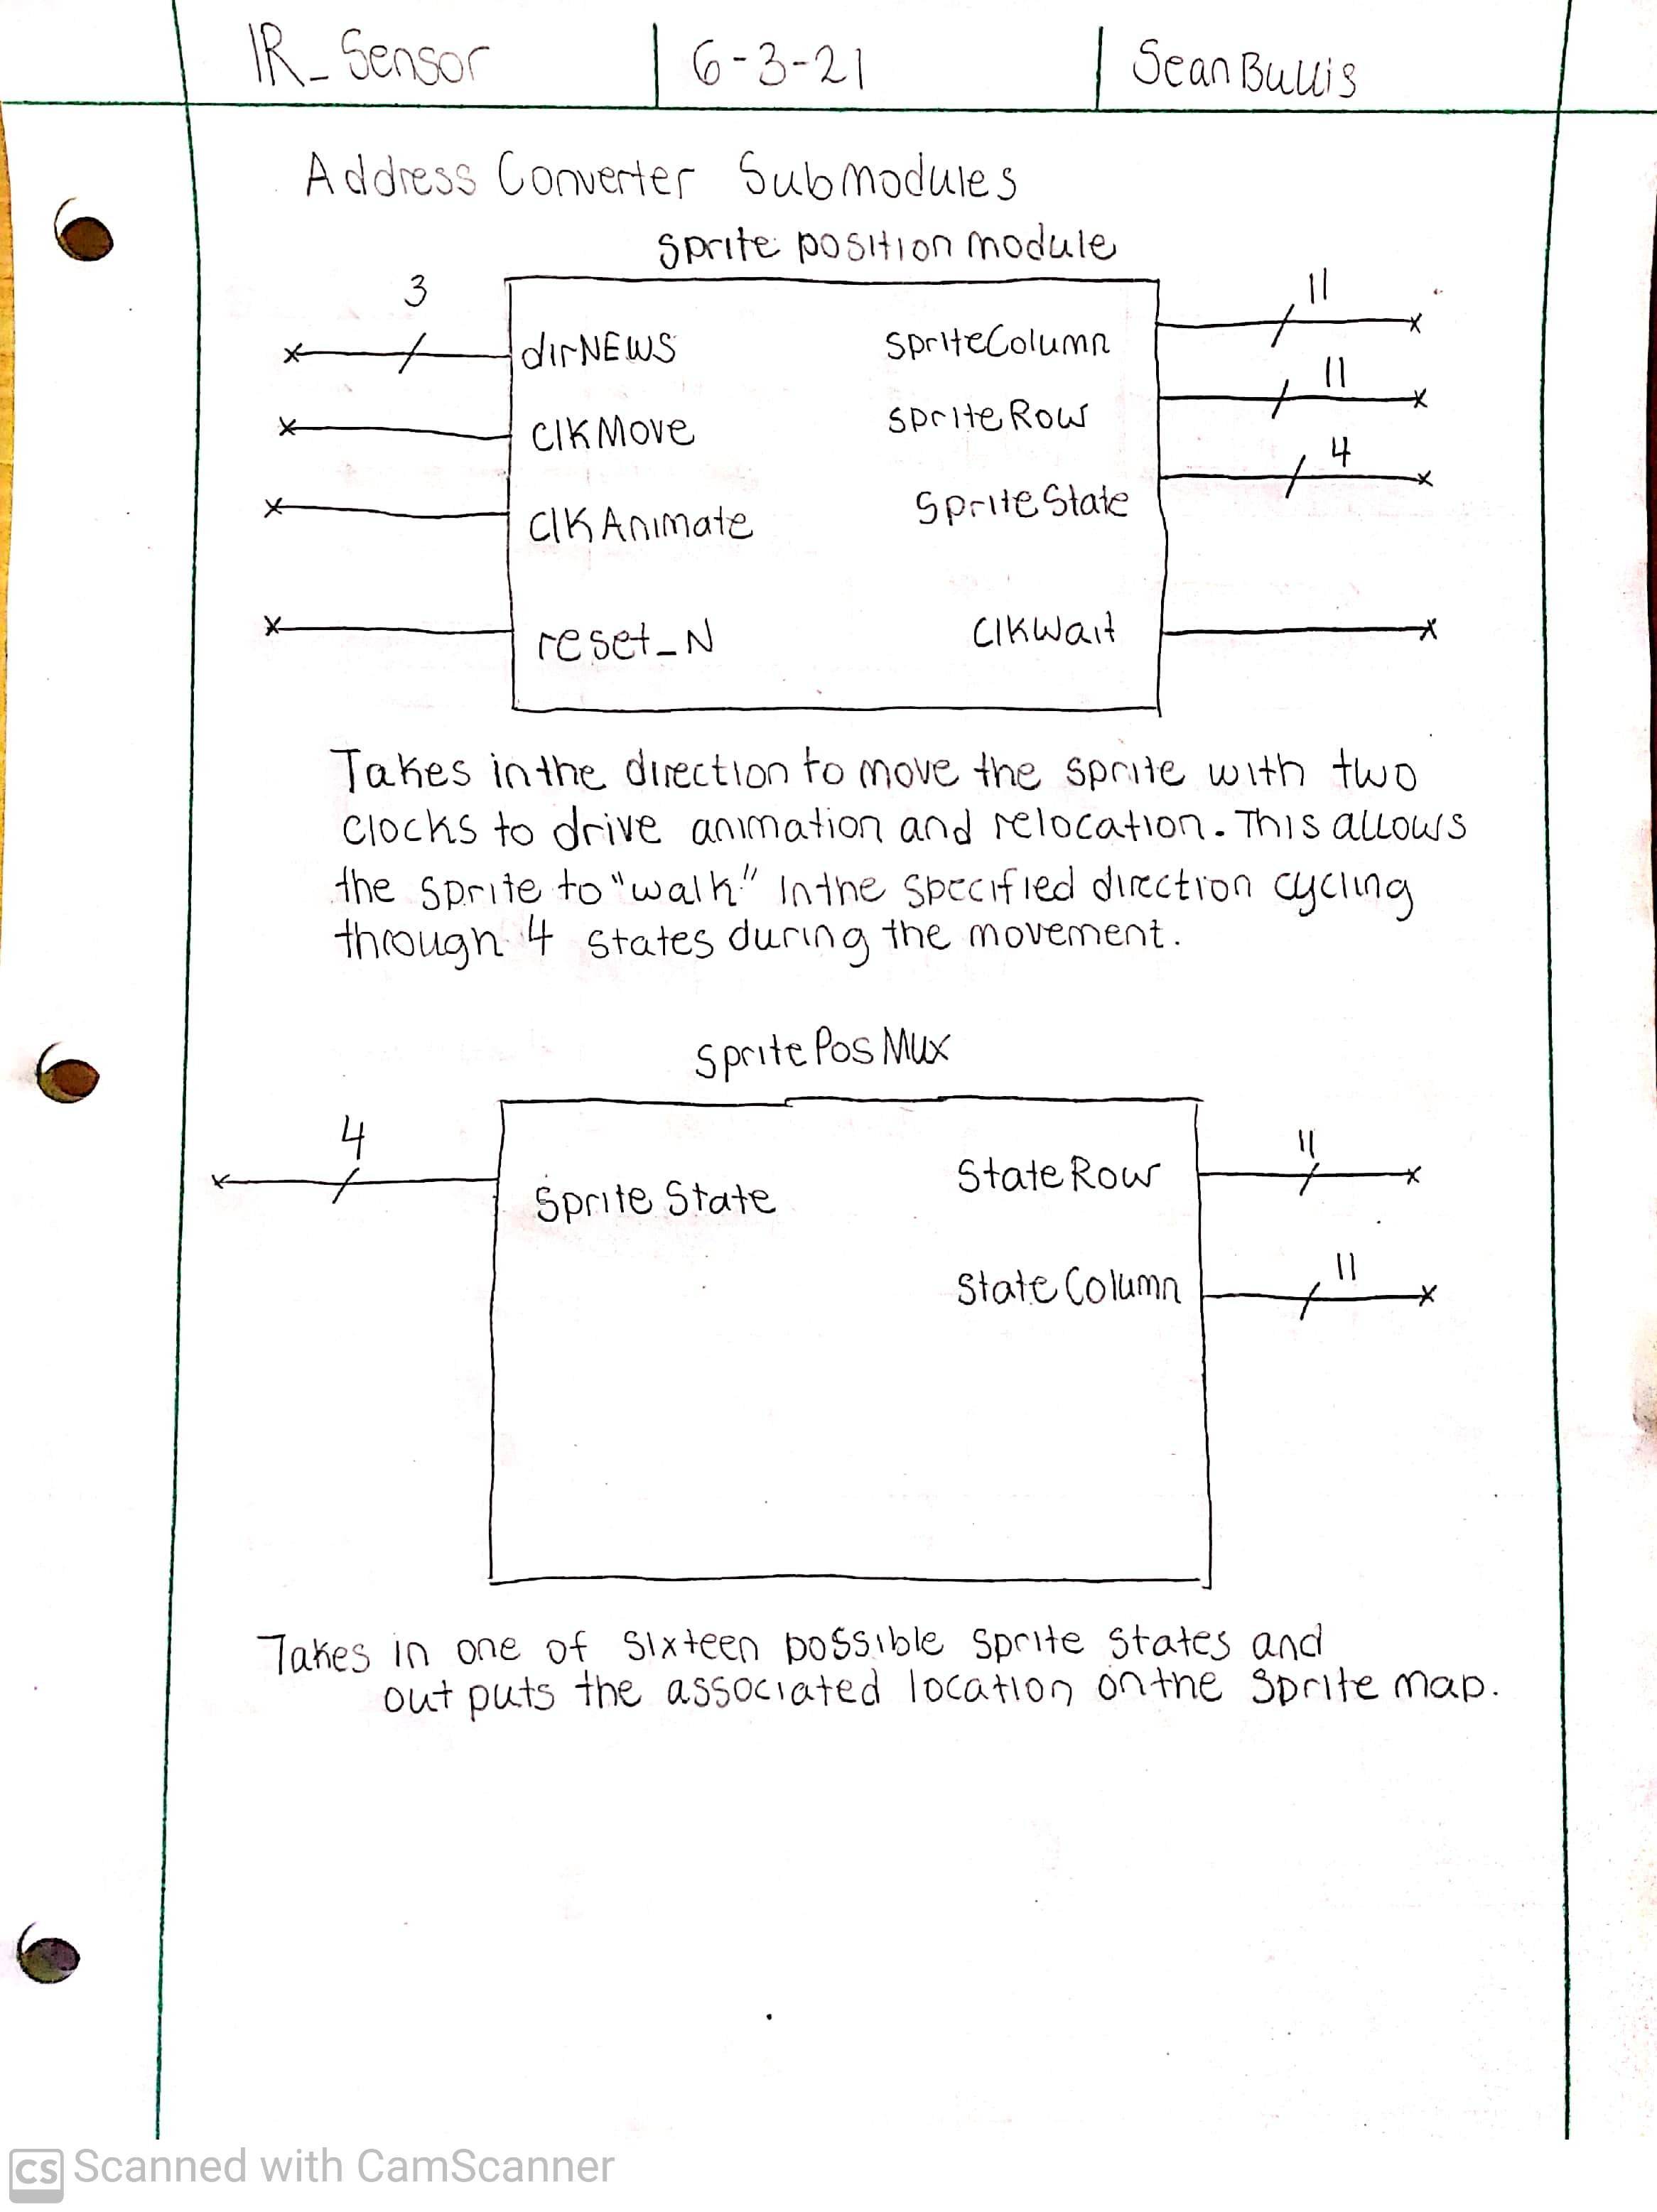 IR_Sensor 6-3-21 Sean Bullis
Address Converter Submodules
Sprite position module
3
11
dirNEWS
SpriteColumn
11
clkMove
SpriteRow
4
clkAnimate
SpriteState
reset_N
clkWait
Takes in the direction to move the sprite with two
clocks to drive animation and relocation. This allows
the sprite to "walk" in the specified direction cycling
through 4 states during the movement.
SpritePosMux
4
11
SpriteState
StateRow
11
StateColumn
Takes in one of sixteen possible sprite states and
outputs the associated location on the sprite map.
CS Scanned with CamScanner